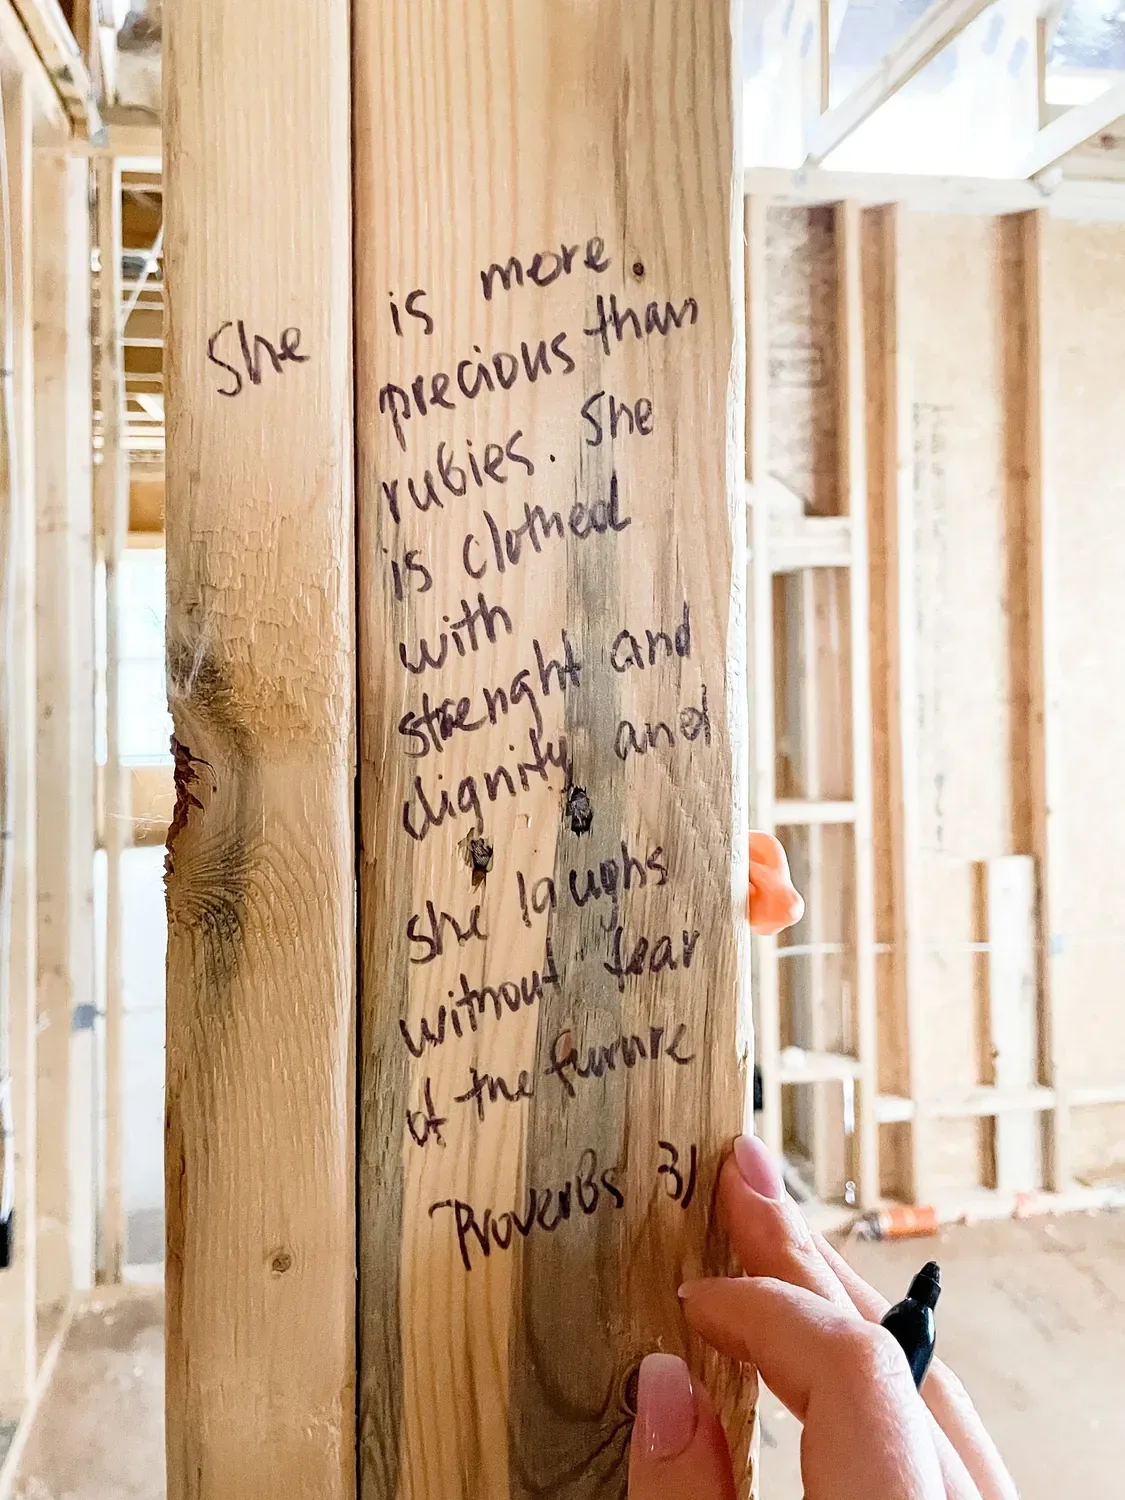 She is more.
precious than
rubies. She
is clothed
with
strenght and
dignity and
she laughs
without fear
of the furure
Proverbs 31